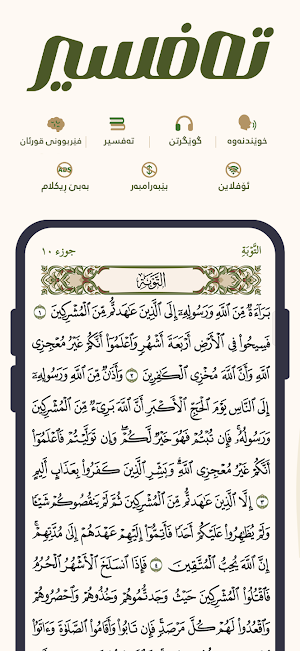 تەفسیر
خوێندنەوە
گوێگرتن
تەفسیر
فێربوونی قورئان
ئۆفلاین
بێبەرامبەر
بەبێ ڕیکلام
التَّوْبَةِ
جوزء ١٠
التَّوْبَةِ
بَرَاءَةٌ مِّنَ ٱللَّهِ وَرَسُولِهِۦٓ إِلَى ٱلَّذِينَ عَٰهَدتُّم مِّنَ ٱلْمُشْرِكِينَ ١
فَسِيحُوا۟ فِى ٱلْأَرْضِ أَرْبَعَةَ أَشْهُرٍ وَٱعْلَمُوٓا۟ أَنَّكُمْ غَيْرُ مُعْجِزِى
ٱللَّهِ وَأَنَّ ٱللَّهَ مُخْزِى ٱلْكَٰفِرِينَ ٢ وَأَذَٰنٌ مِّنَ ٱللَّهِ وَرَسُولِهِۦٓ
إِلَى ٱلنَّاسِ يَوْمَ ٱلْحَجِّ ٱلْأَكْبَرِ أَنَّ ٱللَّهَ بَرِىٓءٌ مِّنَ ٱلْمُشْرِكِينَ
وَرَسُولُهُۥ فَإِن تُبْتُمْ فَهُوَ خَيْرٌ لَّكُمْ وَإِن تَوَلَّيْتُمْ فَٱعْلَمُوٓا۟
أَنَّكُمْ غَيْرُ مُعْجِزِى ٱللَّهِ وَبَشِّرِ ٱلَّذِينَ كَفَرُوا۟ بِعَذَابٍ أَلِيمٍ
٣ إِلَّا ٱلَّذِينَ عَٰهَدتُّم مِّنَ ٱلْمُشْرِكِينَ ثُمَّ لَمْ يَنقُصُوكُمْ شَيْـًٔا
وَلَمْ يُظَٰهِرُوا۟ عَلَيْكُمْ أَحَدًا فَأَتِمُّوٓا۟ إِلَيْهِمْ عَهْدَهُمْ إِلَىٰ مُدَّتِهِمْ
إِنَّ ٱللَّهَ يُحِبُّ ٱلْمُتَّقِينَ ٤ فَإِذَا ٱنسَلَخَ ٱلْأَشْهُرُ ٱلْحُرُمُ
فَٱقْتُلُوا۟ ٱلْمُشْرِكِينَ حَيْثُ وَجَدتُّمُوهُمْ وَخُذُوهُمْ وَٱحْصُرُوهُمْ
وَٱقْعُدُوا۟ لَهُمْ كُلَّ مَرْصَدٍ فَإِن تَابُوا۟ وَأَقَامُوا۟ ٱلصَّلَوٰةَ وَءَاتَوُا۟